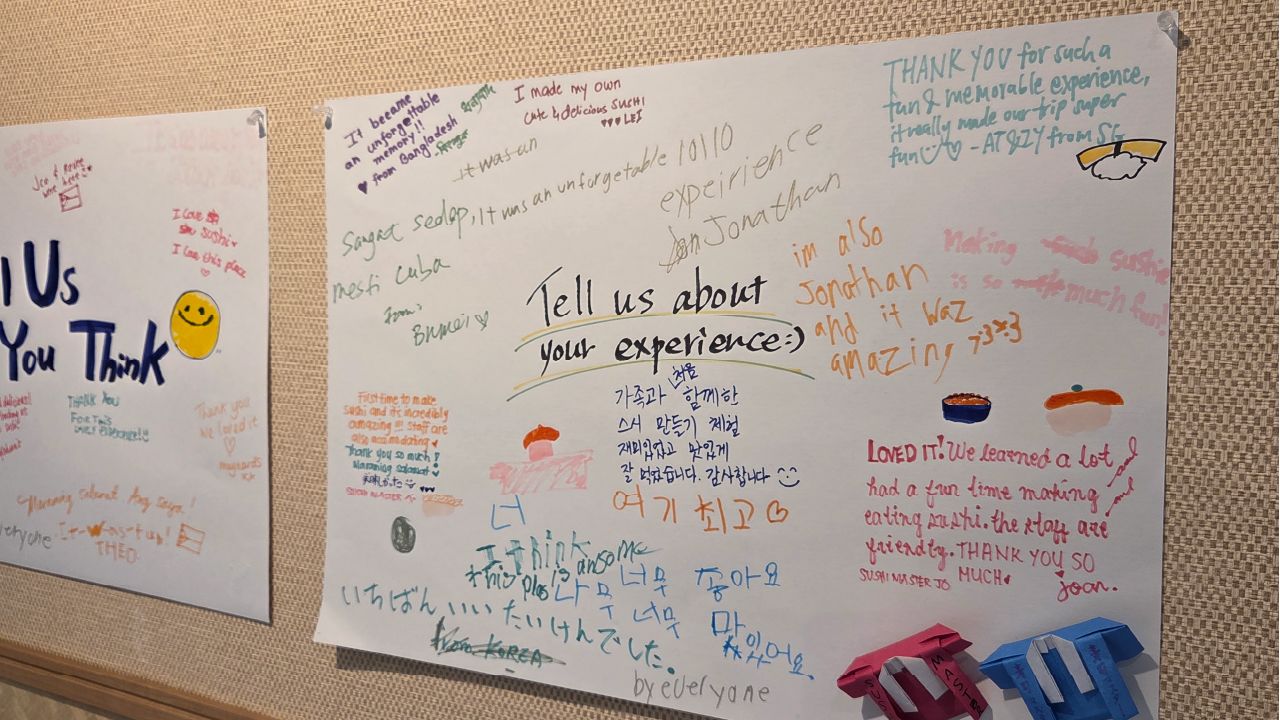 Jec & Reine
were here
I love
sushi
I love this place
l Us
You Think
THANK YOU
FOR THIS
Thank you
we loved it
Maraming salamat Ang saya!
everyone
It-Was-fun!
THEO
It became
an unforgettable
memory!!
from Bangladesh
I made my own
cute & delicious SUSHI
LEI
It was an
Sangat sedap, It was an unforgetable 10/10
expeirience
Jonathan
mesti cuba
from:
Brunei
THANK YOU for such a
fun & memorable experience,
it really made our trip super
fun - AT&ZY from SG
im also
Jonathan
and it waz
amazing
Making sushie
is so much fun!
Tell us about
your experience:)
처음
가족과 함께한
스시 만들기 체험
재미있었고 맛있게
잘 먹었습니다. 감사합니다
여기 최고
First time to make
sushi and it's incredibly
amazing!!! Staff are
also accomodating
Thank you so much!
Maraming salamat
SUSHI MASTER
너
I think
this plas is ansome
나무 너무 좋아요
너무 맛
있어요.
いちばんいいたいけんでした。
from KOREA
by everyone
LOVED IT! We learned a lot
and
had a fun time making
and
eating sushi. the staff are
friendly. THANK YOU SO
MUCH
SUSHI MASTER JO
joan.
SUSHI
MASTER